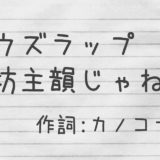 ウズラップ
坊主韻じゃね
作詞:カノコ